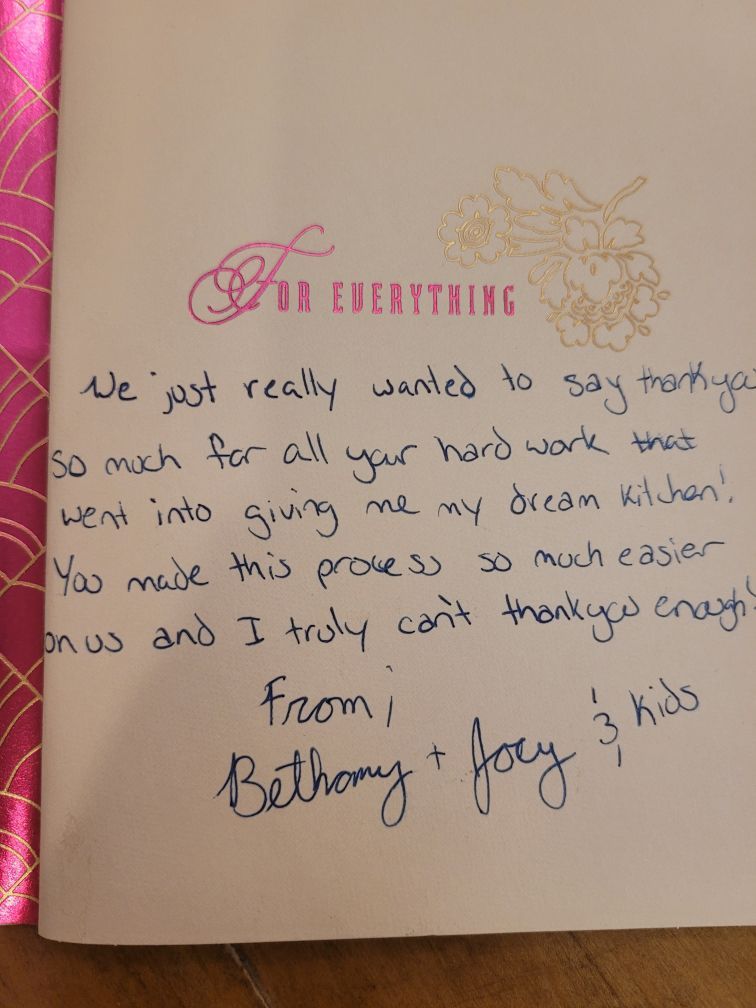 FOR EVERYTHING
We just really wanted to say thank you
so much for all your hard work that
went into giving me my dream kitchen!
You made this process so much easier
on us and I truly can't thank you enough!
From,
Bethany + Joey & kids